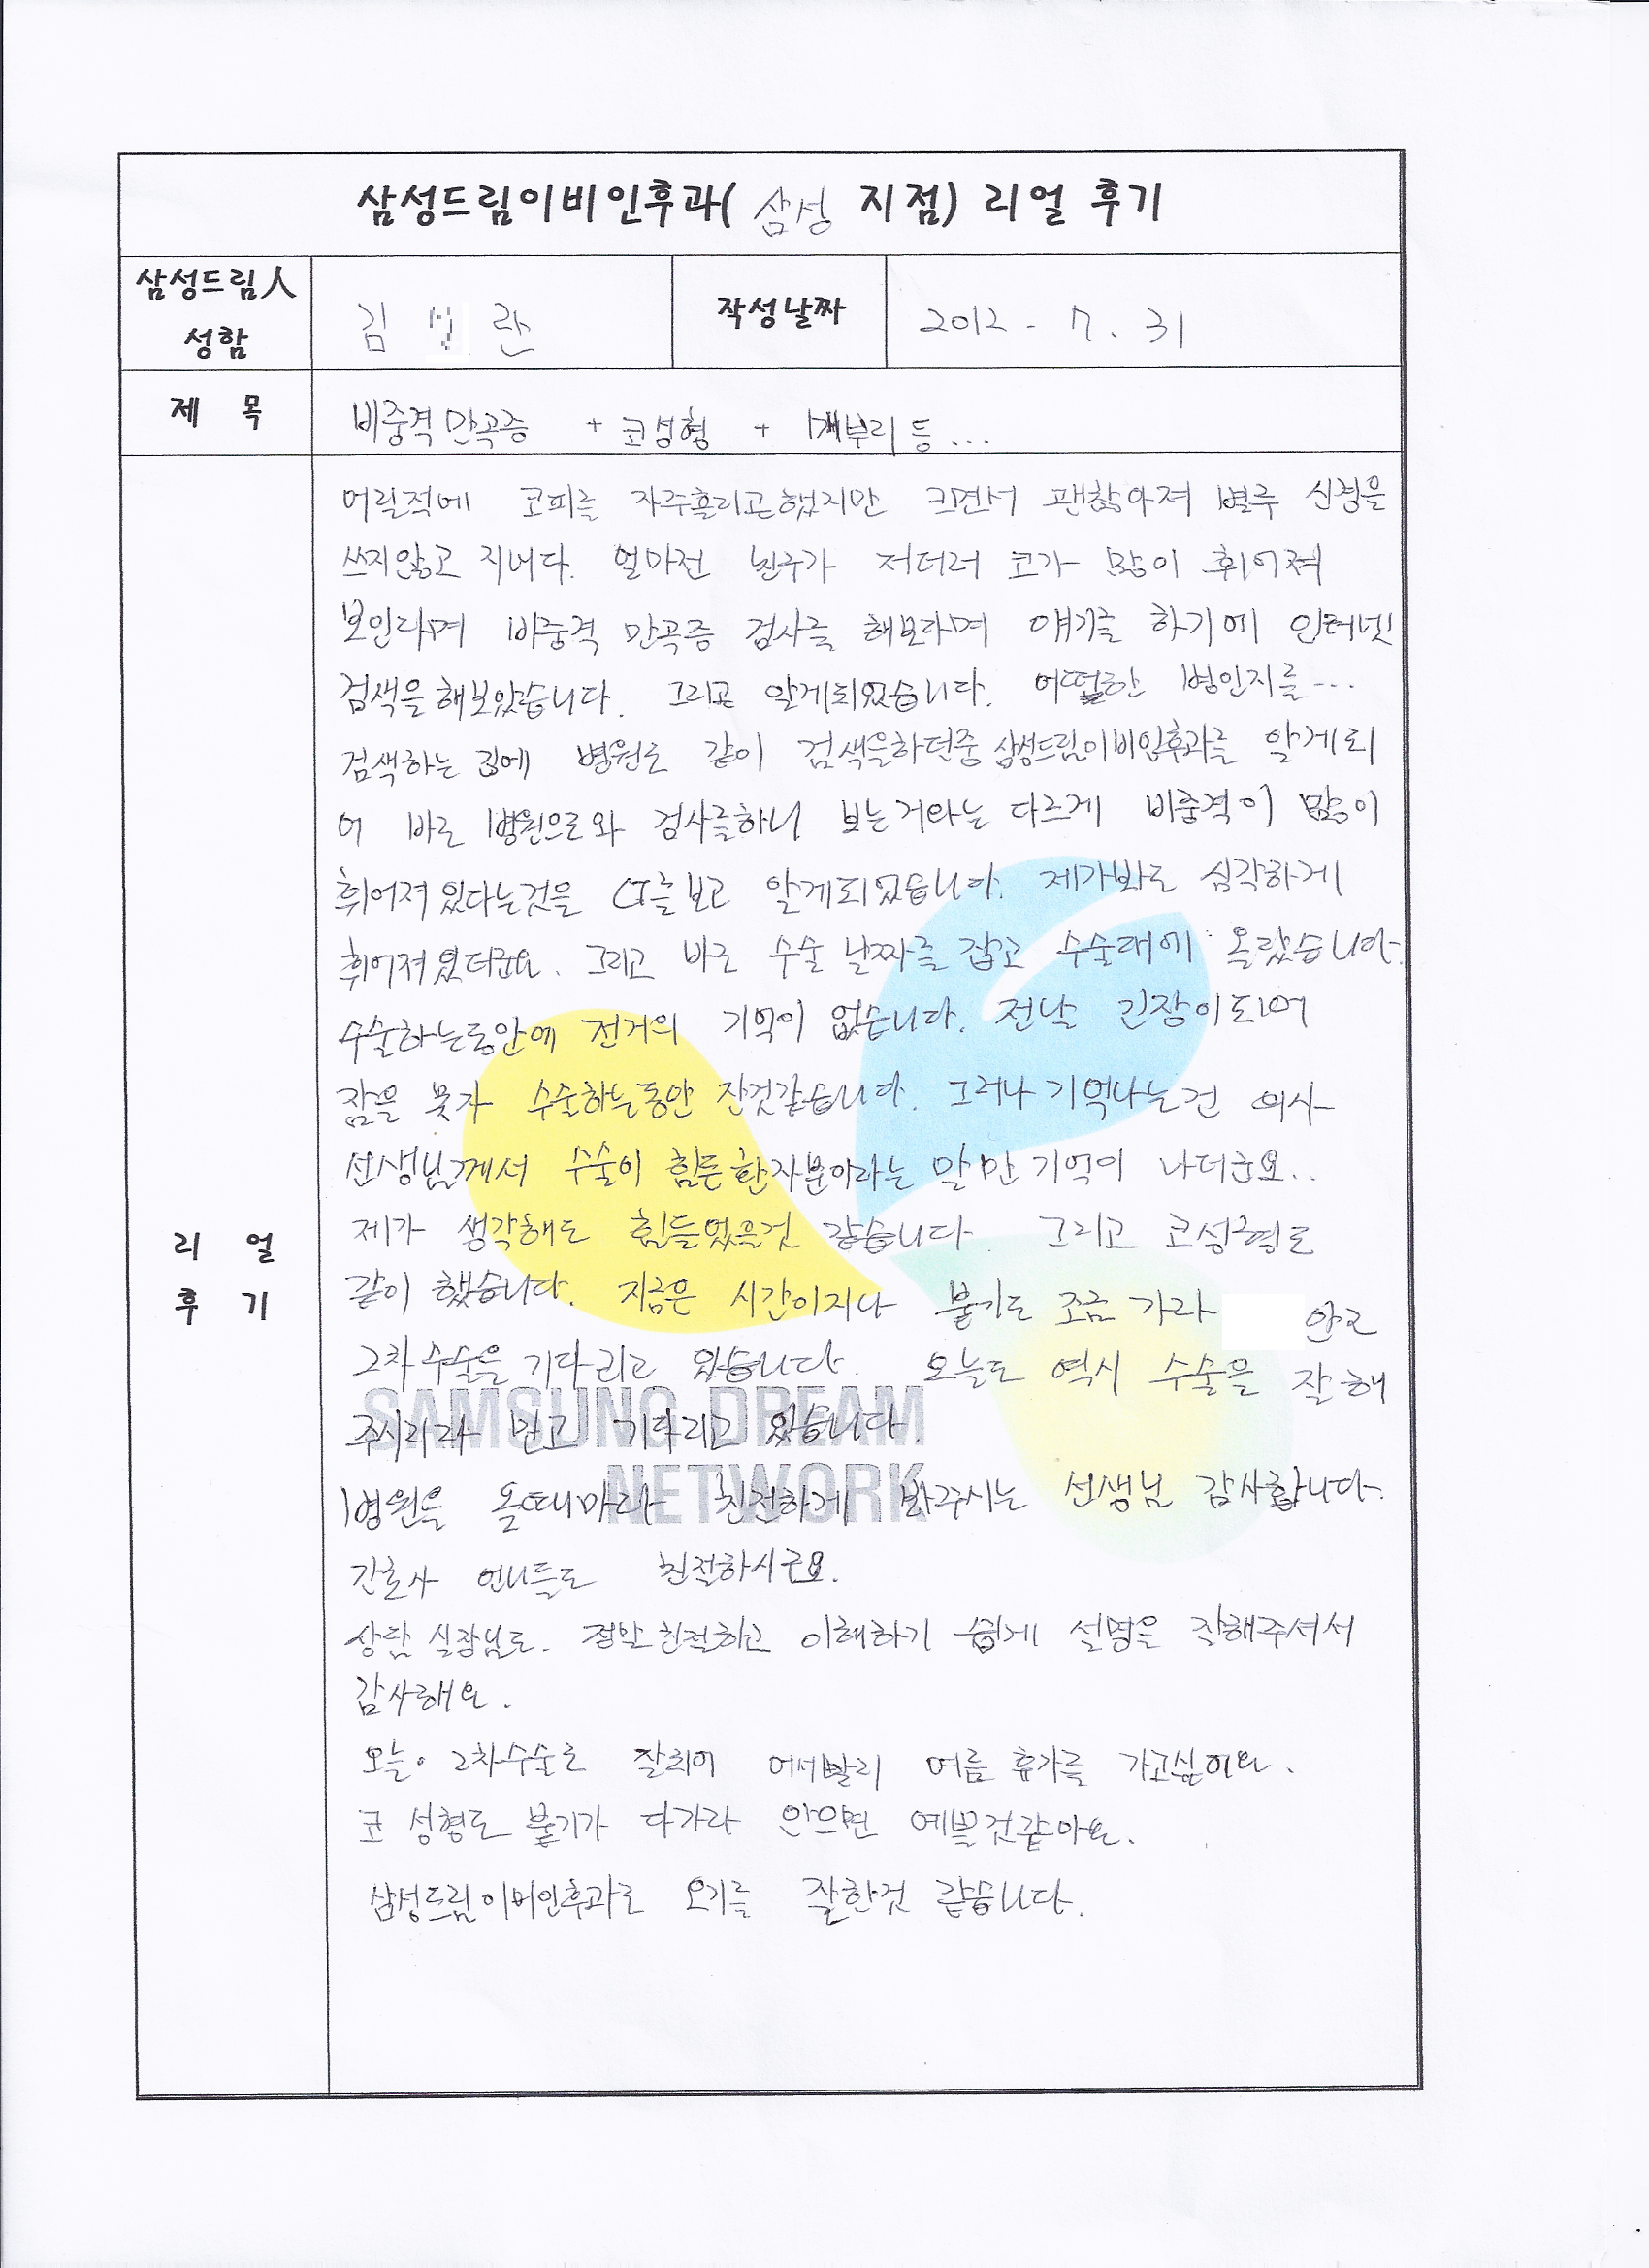 삼성드림이비인후과( 삼성 지점) 리얼 후기
삼성드림人
성함
김 란
작성날짜
2012 - 7. 31
제 목
비중격만곡증 + 코성형 + 매부리 등...
어릴적에 코피를 자주흘리곤했지만 크면서 괜찮아져 별루 신경을
쓰지않고 지내다. 얼마전 친구가 저더러 코가 많이 휘어져
보인다며 비중격 만곡증 검사를 해보라며 얘기를 하기에 인터넷
검색을 해보았습니다. 그리고 알게되었습니다. 어떠한 병인지를...
검색하는 김에 병원도 같이 검색을하던중 삼성드림이비인후과를 알게되
어 바로 병원으로와 검사를하니 보는거와는 다르게 비중격이 많이
휘어져있다는것을 CT를보고 알게되었습니다. 제가봐도 심각하게
휘어져있더군요. 그리고 바로 수술 날짜를 잡고 수술대에 올랐습니다.
수술하는동안에 전거의 기억이 없습니다. 전날 긴장이되어
잠을 못자 수술하는동안 잔것같습니다. 그러나 기억나는건 의사
선생님께서 수술이 힘든환자분이라는 말만 기억이 나더군요..
제가 생각해도 힘들었을것 같습니다. 그리고 코성형도
같이 했습니다. 지금은 시간이지나 붓기도 조금 가라 안고
2차수술을 기다리고 있습니다. 오늘도 역시 수술을 잘해
주시리라 믿고 기다리고 있습니다.
SAMSUNG DREAM
NETWORK
병원을 올때마다 친절하게 봐주시는 선생님 감사합니다.
간호사 언니들도 친절하시구요.
상담 실장님도. 정말친절하고 이해하기 쉽게 설명을 잘해주셔서
감사해요.
오늘. 2차수술도 잘되어 어서빨리 여름 휴가를 가고싶어요.
코 성형도 붓기가 다가라 안으면 예쁠것같아요.
삼성드림이비인후과로 오기를 잘한것 같습니다.
리 얼
후 기